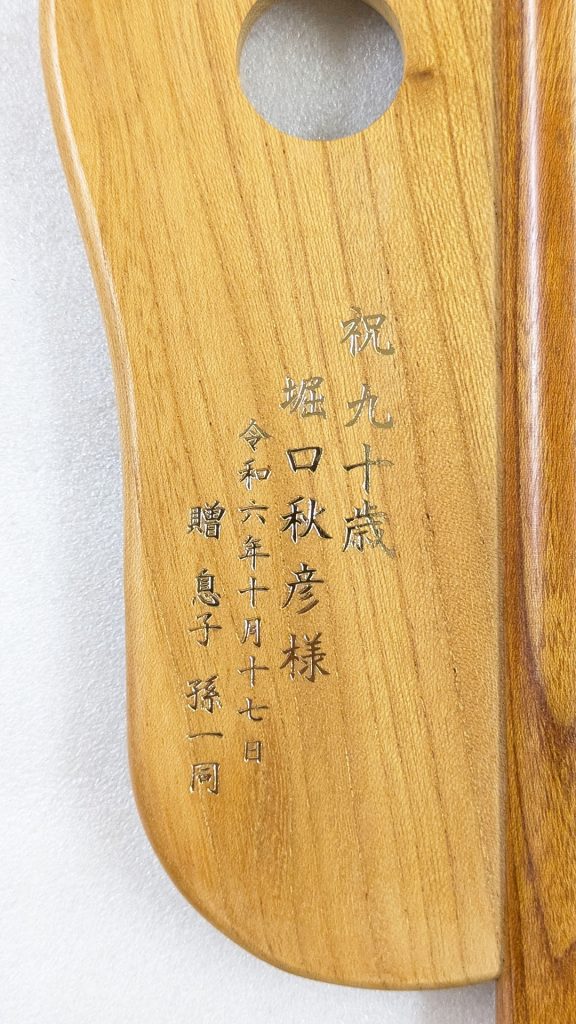 祝九十歳
堀口秋彦様
令和六年十月十七日
贈 息子 孫一同